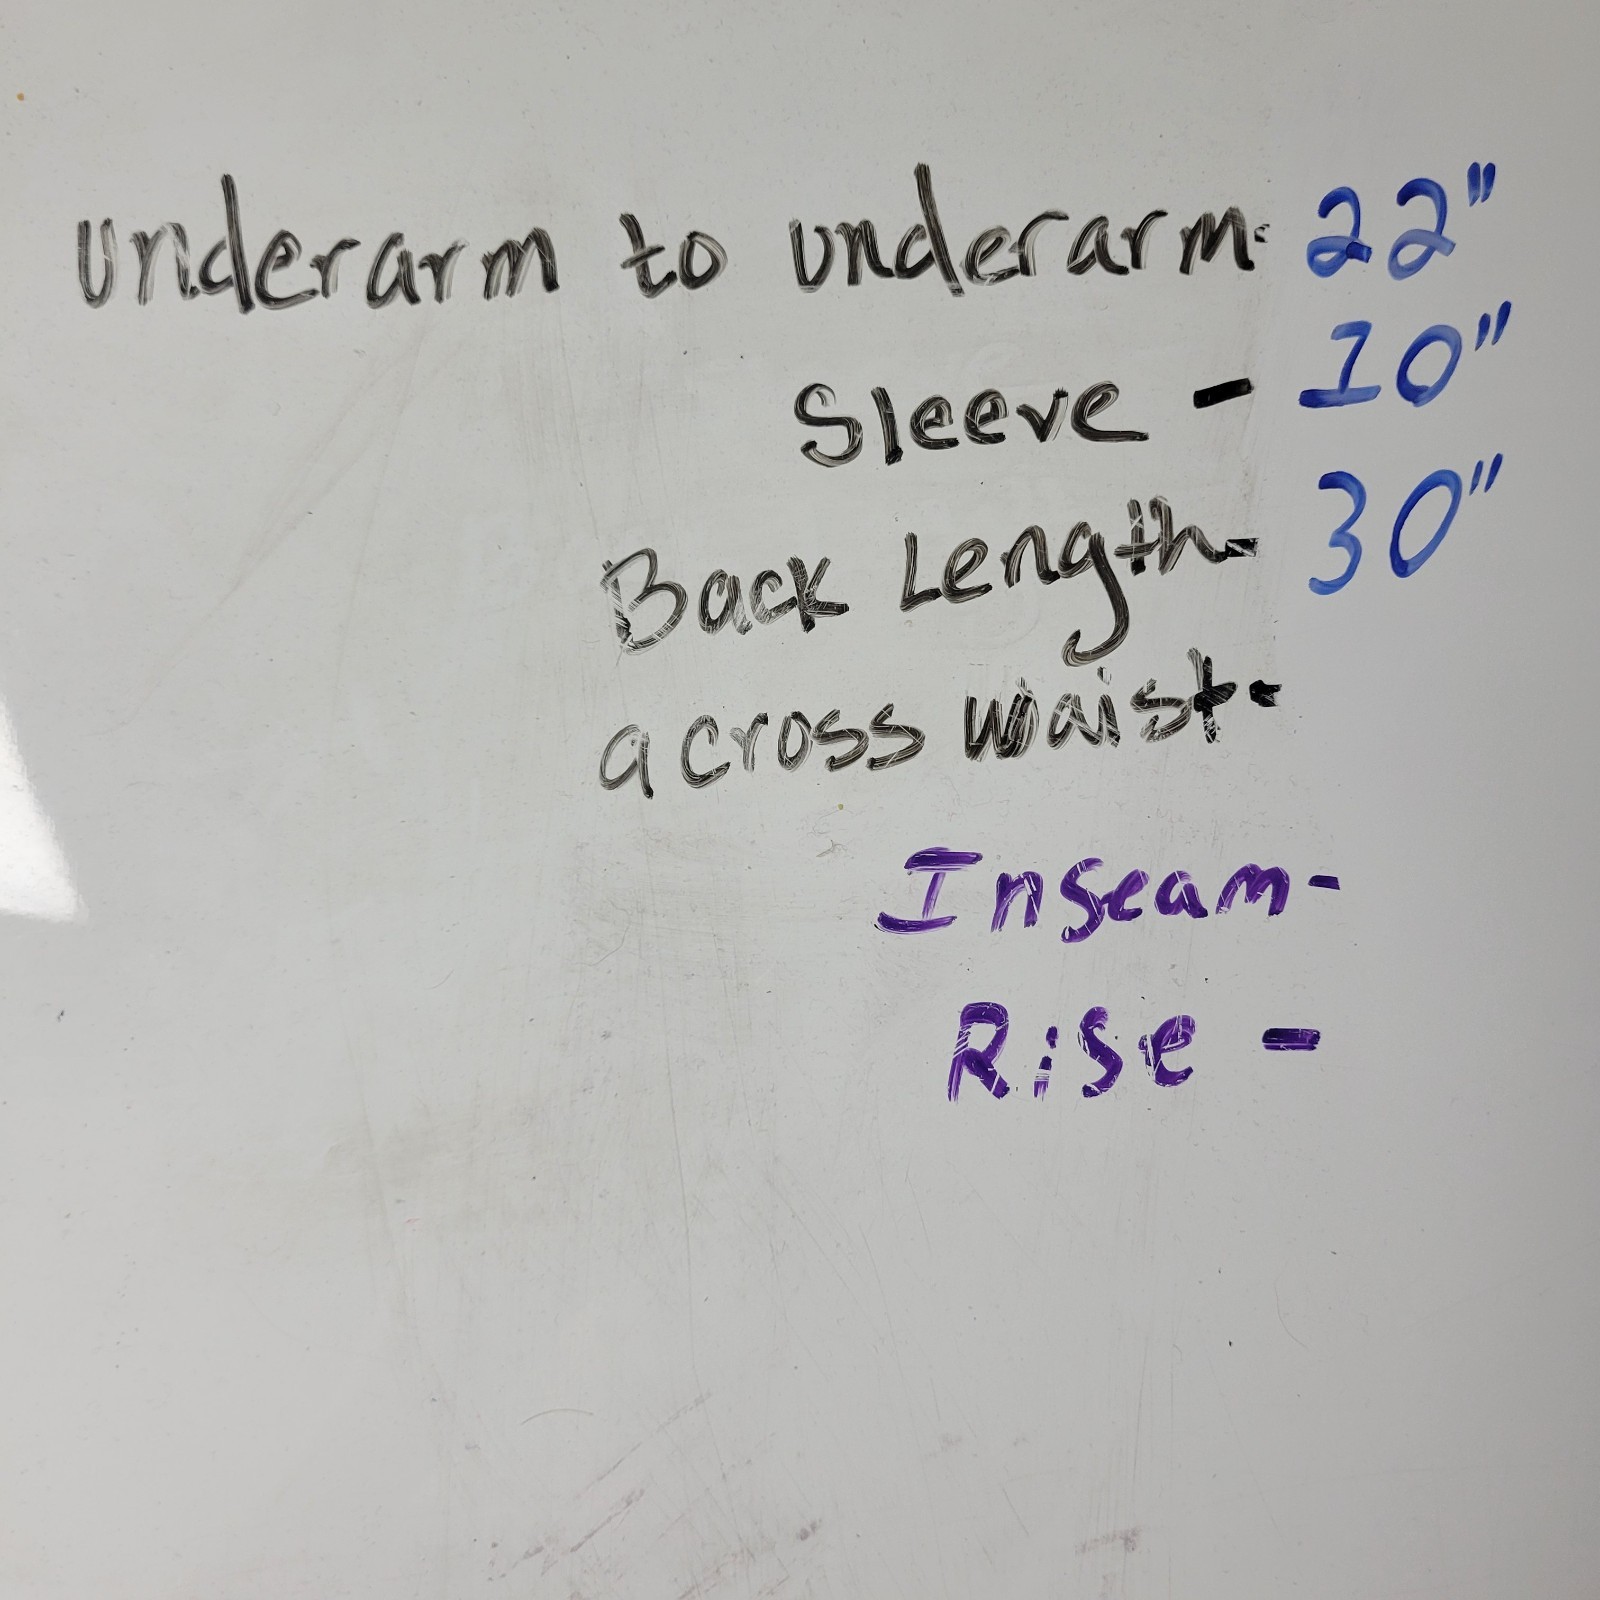 underarm to underarm- 22"
Sleeve - 10"
Back Length- 30"
across waist-
Inseam-
Rise -